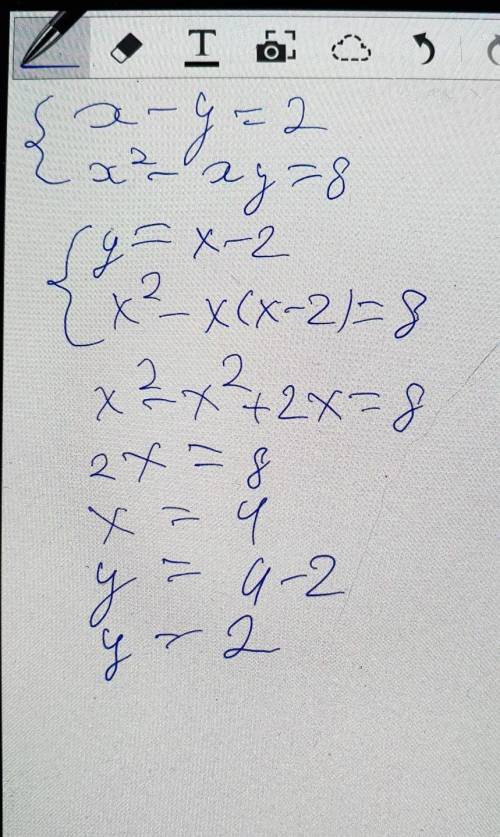 T
{ x - y = 2
x² - xy = 8
{ y = x - 2
x² - x(x-2) = 8
x² - x² + 2x = 8
2x = 8
x = 4
y = 4 - 2
y = 2